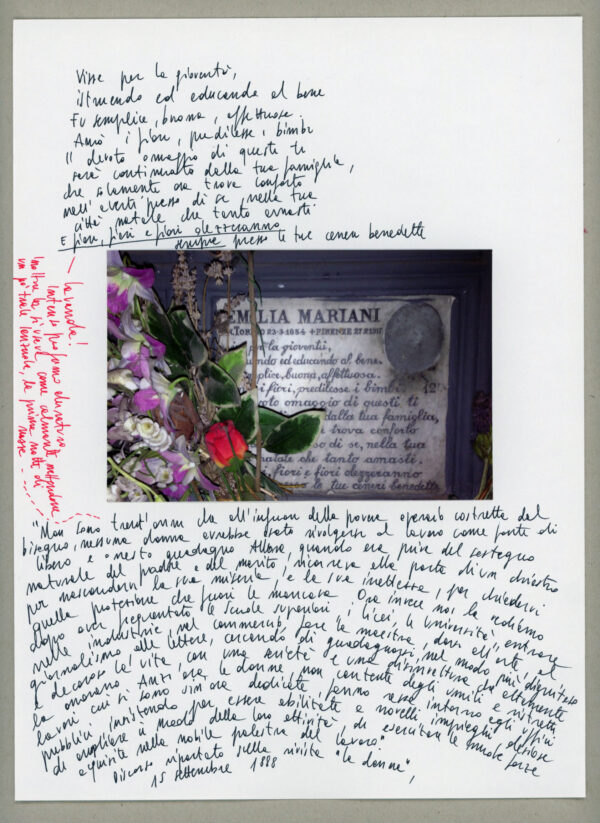 Visse per la gioventù,
istruendo ed educando al bene
Fu semplice, buona, affettuosa.
Amò i fiori, predilesse i bimbi
Il devoto omaggio di questi ti
sarà continuato dalla tua famiglia,
che solamente ora trova conforto
nell'averti presso di se, nella tua
città natale che tanto amasti
E fiori, fiori e fiori olezzeranno
sempre presso le tue ceneri benedette
lavanda!
intenso profumo
Inoltre la si usava come
un po' tra le lenzuola, la prima notte di
nozze
EMILIA MARIANI
TORINO 23-3-1854 + FIRENZE 21-2-1917
per la gioventù,
endo ed educando al bene.
plice, buona, affettuosa.
i fiori, predilesse i bimbi.
oto omaggio di questi ti
dalla tua famiglia,
a trova conforto
so di se, nella tua
natale che tanto amasti.
fiori e fiori olezzeranno
le tue ceneri benedette
"Non sono trent'anni che all'infuori della povera operaia costretta dal
bisogno, nessuna donna avrebbe osato rivolgersi al lavoro come fonte di
libero e onesto guadagno Allora, quando era priva del sostegno
naturale del padre e del marito, ricorreva alla porta di un chiostro
per nascondervi la sua miseria, e la sua inettezza, per chiedervi
quella protezione che fuori le mancava Ora invece noi la vediamo
dopo aver frequentato le scuole superiori i licei, le università entrare
nelle industrie, nel commercio, fare la maestra, darsi all'arte, al
giornalismo alle lettere, cercando di guadagnarsi nel modo più dignitoso
e decoroso la vita, con una serietà e una disinvoltura che altamente
la onorano Anzi ora, le donne non contente degli umili e ristretti
lavori cui si sono sinora dedicate, fanno ressa intorno agli uffici
pubblici insistendo per essere abilitate a novelli impieghi desiose
di ampliare il modo della loro attività di esercitare le forze
acquisite nella nobile palestra del lavoro"
Discorso riportato sulla rivista "la donna",
15 settembre 1888